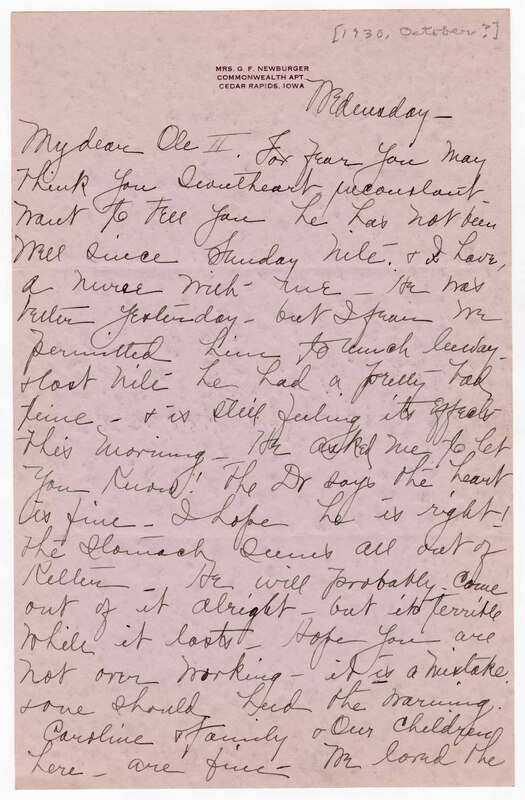 [1930, October?]
MRS. G. F. NEWBURGER
COMMONWEALTH APT.
CEDAR RAPIDS, IOWA
Wednesday -
My dear Ole II. For fear you may
think you Sweetheart inconstant
want to tell you he has not been
well since Sunday nite. & I have,
a nurse with me - He was
better yesterday - but I fear we
permitted him to much leeway -
& last nite he had a pretty bad
time - & is still feeling its effects
this morning - He asked me to let
you know! The Dr says the heart
is fine - I hope he is right!
the stomach seems all out of
Kelter - He will probably come
out of it alright - but its terrible
while it lasts - Hope you are
not over working - it is a mistake.
& one should heed the warning.
Caroline & family & Our children
here - are fine - We loved the